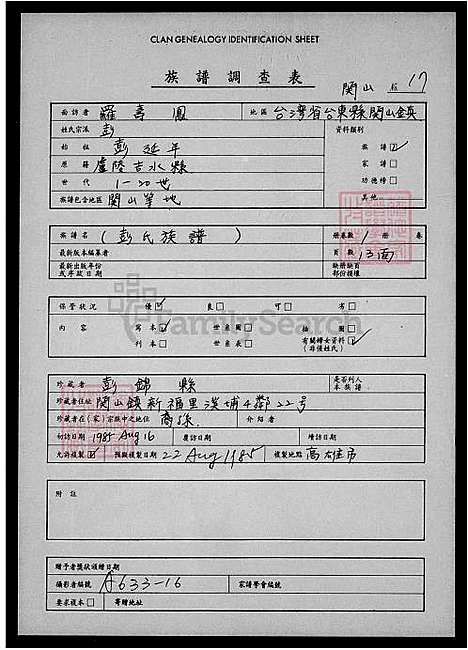 CLAN GENEALOGY IDENTIFICATION SHEET
族譜調查表
関山 17
面訪者 羅壽鳳 地區 台灣省台東縣関山鎮
姓氏宗派 彭 資料類別
始祖 彭延年 族譜☑
原籍 盧陵吉水縣 家譜□
世代 1-20世 功德榜□
族譜包含地區 関山等地 其他
族譜名 (彭氏族譜) 册卷數 1 册 卷
最新版本編纂者 頁數 13面
最新出版年份 缺册缺頁
或序政日期 部份損壞
保管狀況 優☑ 良□ 可□ 劣□
內容 寫本☑ 世系圖□ 插圖□
刊本□ 世系表□ 有關婦女資料☑
(非僅姓氏)
珍藏者 彭錦縣 是否列入
本族譜
珍藏者住址 関山鎮新福里溪埔4鄰22号
珍藏者在(家)宗族中之地位 裔孫 介紹者
初訪日期 1985 Aug 16 覆訪日期 續訪日期
允許複製☑ 預擬複製日期 22 Aug 1985 複製地點 高雄市
附註
贈予者獎狀頒贈日期
攝影者編號 A633-16 家譜學會編號
要求複本□ 寄贈地址
FamilySearch